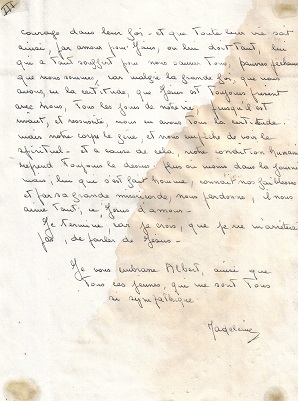 III
courage dans leur foi - et que toute leur vie soit
ainsi, par amour pour Jésus, on lui doit tant, lui
qui a tant souffert pour nous sauver tous, pauvres pécheurs
que nous sommes, car malgré la grande foi, que nous
avons, en la certitude, que Jésus est toujours présent
avec nous, tous les jours de notre vie, puisqu'il est
vivant, et ressuscité, nous en avons tous la certitude -
mais notre corps le gêne, et nous empêche de voir le
spirituel - et à cause de cela, notre condition humaine
reprend toujours le dessus, plus ou moins dans la journée
mais, lui que s'est fait homme, connait nos faiblesses
et par sa grande miséricorde, nous pardonne, il nous
aime tant, ce Jésus d'amour -
Je termine, car je crois, que je ne m'arrêterai
pas, de parler de Jésus -
Je vous embrasse Albert, ainsi que
tous les jeunes, qui me sont tous
si sympathique
Madeleine